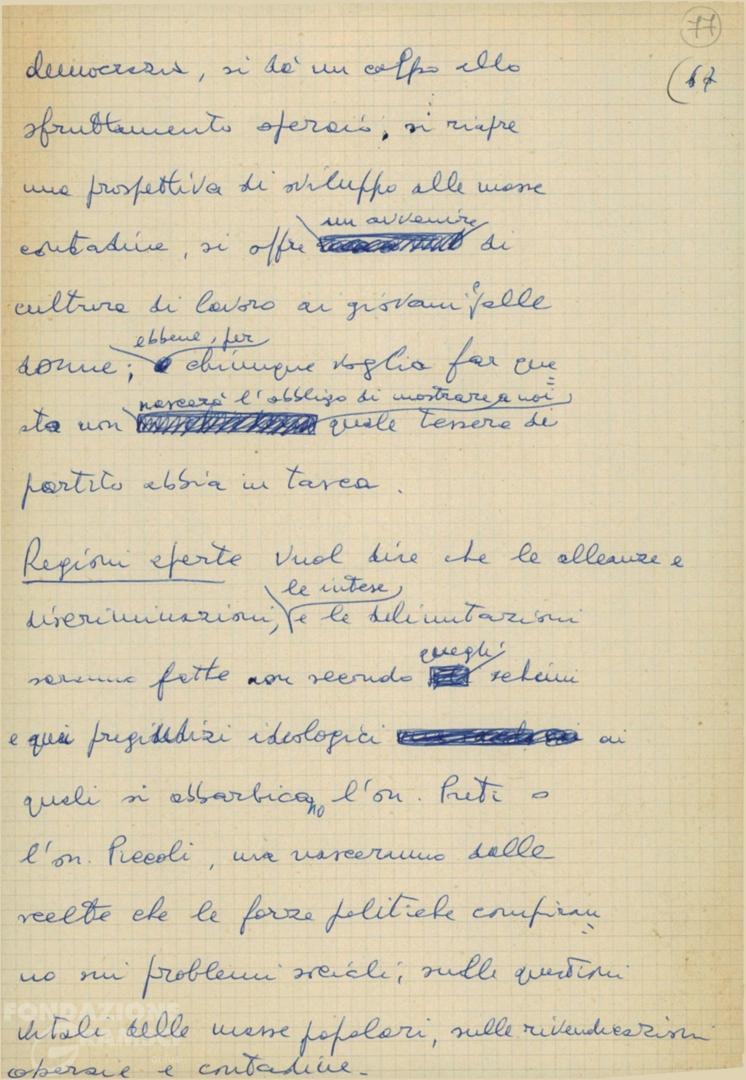 77
67
democrazia, si dà un colpo allo
sfruttamento operaio, si riapre
una prospettiva di sviluppo alle masse
un avvenire
contadine, si offre di
cultura di lavoro ai giovani e alle
ebbene, per
donne; chiunque voglia far que
nascerà l'obbligo di mostrare a noi
sto non quale tessera di
partito abbia in tasca.
Regioni aperte vuol dire che le alleanze e
le intese
discriminazioni, e le delimitazioni
saranno fatte non secondo quegli schemi
e quei pregiudizi ideologici ai
quali si abbarbicano l'on. Preti o
l'on. Piccoli, ma nasceranno dalle
scelte che le forze politiche compiran
no sui problemi sociali, sulle questioni
vitali delle masse popolari, sulle rivendicazioni
operaie e contadine.
FONDAZIONE